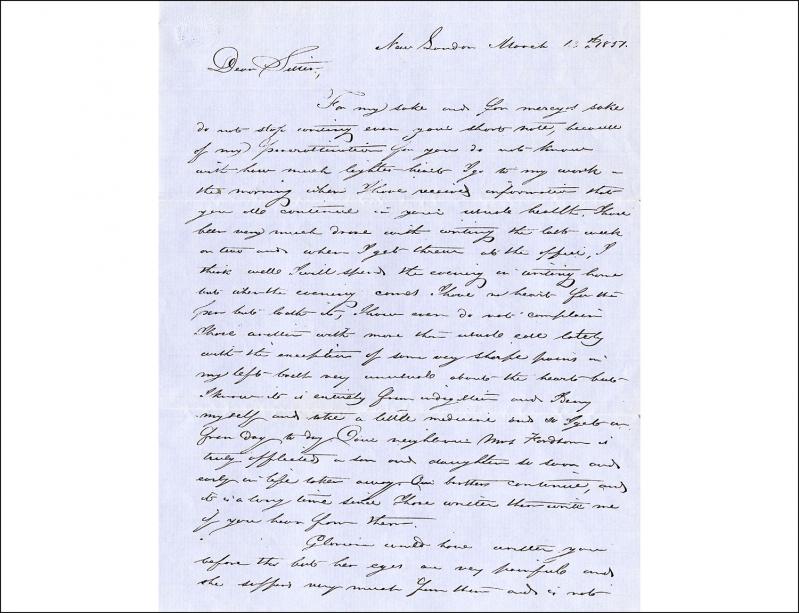 New London March 13th 1851.
Dear Sister,
For my sake and for mercy's sake
do not stop writing even your short note, because
of my procrastination for you do not know
with how much lighter heart I go to my work
the morning when I have received information that
you all continue in your usual health. I have
been very much drove with writing the last week
or two and when I get threw at the office, I
think well I will spend the evening in writing home
but when the evening comes I have no heart for the
pen but loath it, I how ever do not complain
I have written with more than usual lately
with the exception of some very sharp pains in
my left very unusual about the heart but
I know it is entirely from indigestion and
myself and take a little medicine and so I get on
from Day to day Our neighbour Mrs is
truly afflicted a son and daughter so soon and
early in life taken away. Our continue, and
it is a long time since I have written them write me
if you hear from them.
would have written you
before this but her eyes are very painful and
she suffers very much from them and is not